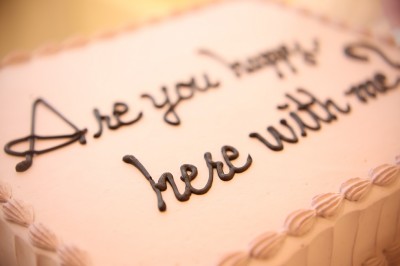 Are you happy
here with me?